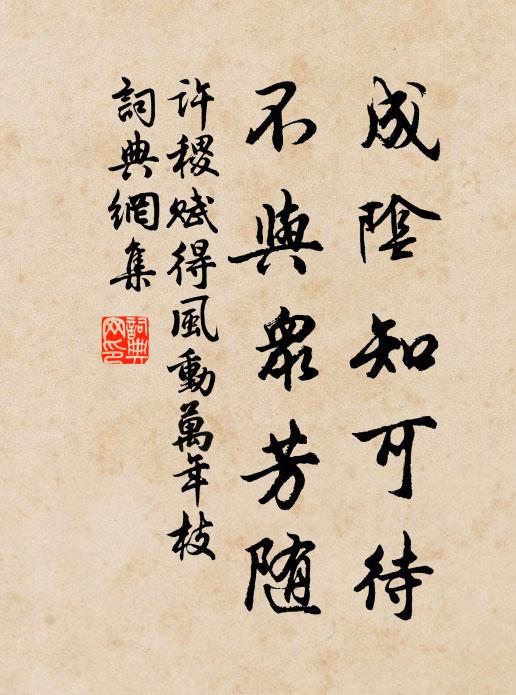 成陰知可待
不與眾芳隨
許稷賦得風動萬年枝
詞典網集
詞典網印